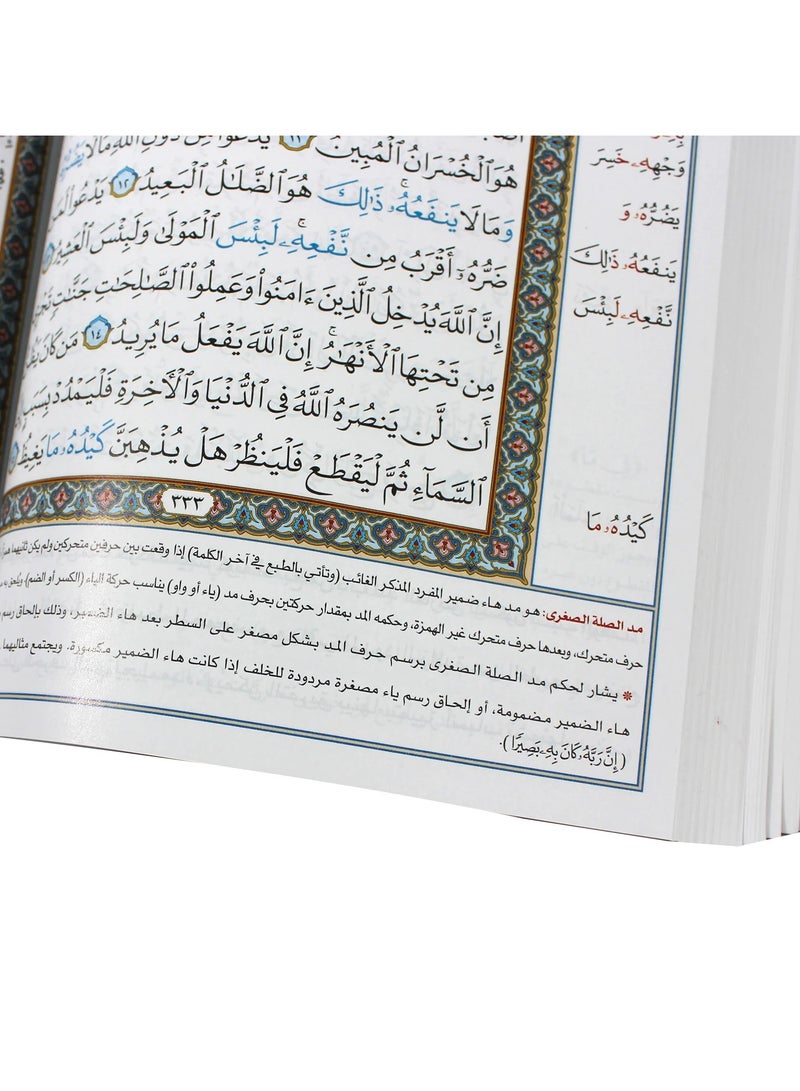 هُوَ ٱلْخُسْرَانُ ٱلْمُبِينُ ١١ يَدْعُوا۟ مِن دُونِ ٱللَّهِ مَا لَا يَضُرُّهُۥ
وَمَا لَا يَنفَعُهُۥ ۚ ذَٰلِكَ هُوَ ٱلضَّلَٰلُ ٱلْبَعِيدُ ١٢ يَدْعُوا۟ لَمَن
ضَرُّهُۥٓ أَقْرَبُ مِن نَّفْعِهِۦ ۚ لَبِئْسَ ٱلْمَوْلَىٰ وَلَبِئْسَ ٱلْعَشِيرُ
إِنَّ ٱللَّهَ يُدْخِلُ ٱلَّذِينَ ءَامَنُوا۟ وَعَمِلُوا۟ ٱلصَّٰلِحَٰتِ جَنَّٰتٍ تَجْرِى
مِن تَحْتِهَا ٱلْأَنْهَٰرُ ۚ إِنَّ ٱللَّهَ يَفْعَلُ مَا يُرِيدُ ١٤ مَن كَانَ يَظُنُّ
أَن لَّن يَنصُرَهُ ٱللَّهُ فِى ٱلدُّنْيَا وَٱلْءَاخِرَةِ فَلْيَمْدُدْ بِسَبَبٍ
ٱلسَّمَآءِ ثُمَّ لْيَقْطَعْ فَلْيَنظُرْ هَلْ يُذْهِبَنَّ كَيْدُهُۥ مَا يَغِيظُ
٣٣٣
وَجْهِهِۦ خَسِرَ
يَضُرُّهُۥ وَ
يَنفَعُهُۥ ذَٰلِكَ
نَّفْعِهِۦ لَبِئْسَ
كَيْدُهُۥ مَا
مد الصلة الصغرى: هو مد هاء ضمير المفرد المذكر الغائب (وتأتي بالطبع في آخر الكلمة) إذا وقعت بين حرفين متحركين ولم يكن ثانيهما
حرف متحرك، وبعدها حرف متحرك غير الهمزة، وحكمه المد بمقدار حركتين بحرف مد (ياء أو واو) يناسب حركة الهاء (الكسر أو الضم)
* يشار لحكم مد الصلة الصغرى برسم حرف المد بشكل مصغر على السطر بعد هاء الضمير، وذلك بإلحاق رسم
هاء الضمير مضمومة، أو إلحاق رسم ياء مصغرة مردودة للخلف إذا كانت هاء الضمير مكسورة. ويجتمع مثاليهما
( إِنَّ رَبَّهُۥ كَانَ بِهِۦ بَصِيرًا ).